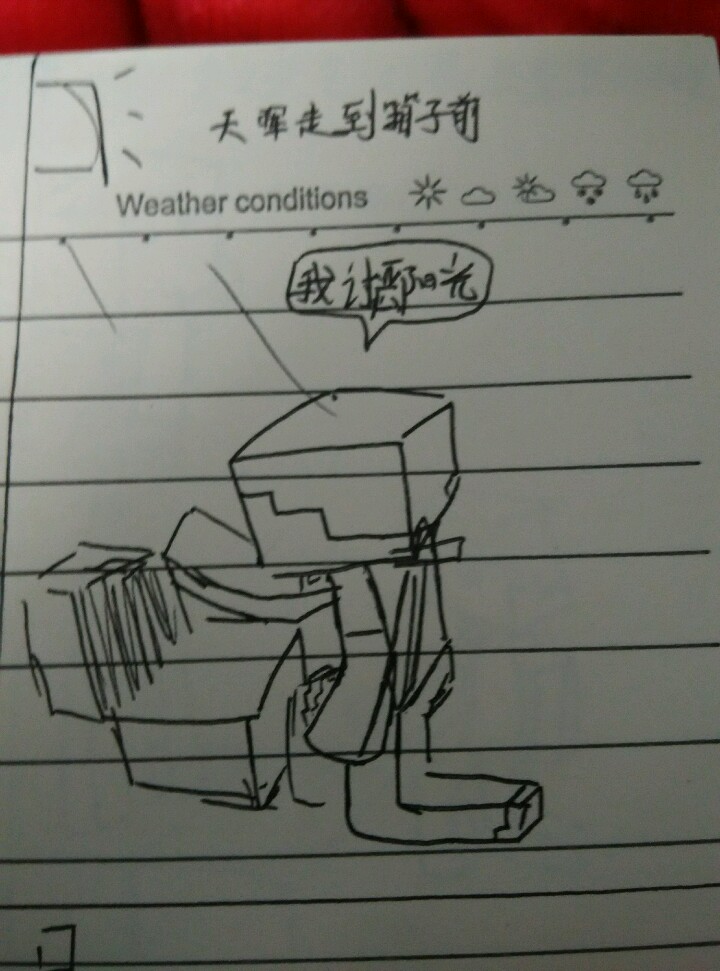 天晖走到箱子前
Weather conditions
我讨鄢阳光